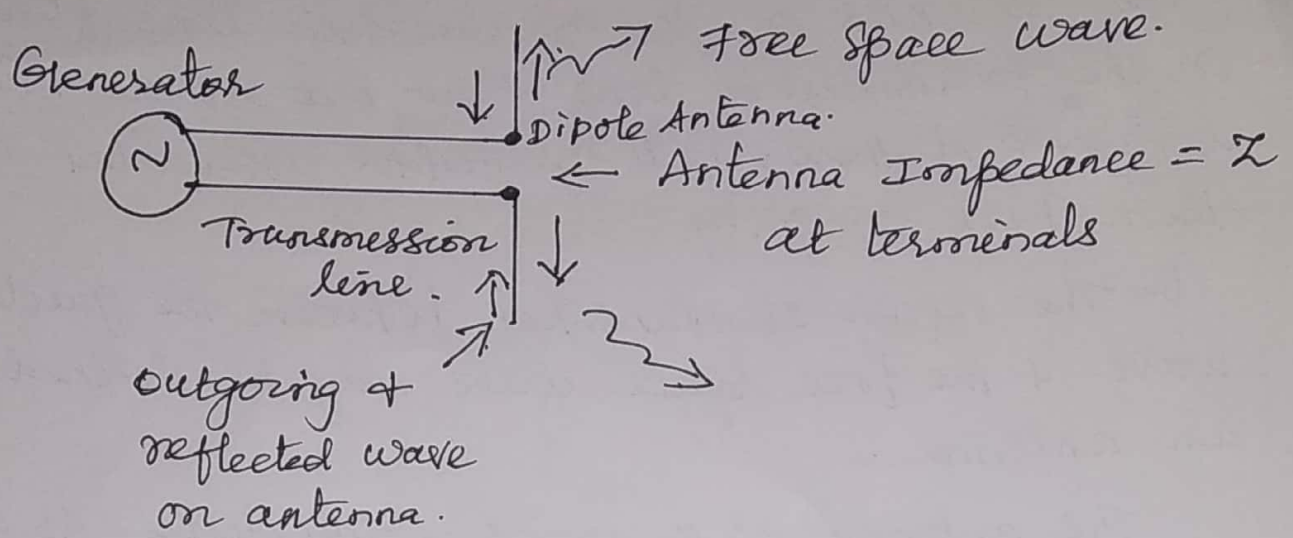 Free Space wave.
Generator
Dipole Antenna.
~
← Antenna Impedance = Z
at terminals
Transmession
line.
outgoing &
reflected wave
on antenna.